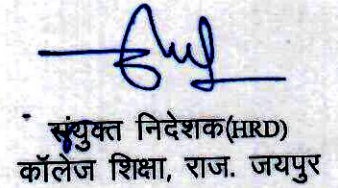 संयुक्त निदेशक(HRD)
कॉलेज शिक्षा, राज. जयपुर